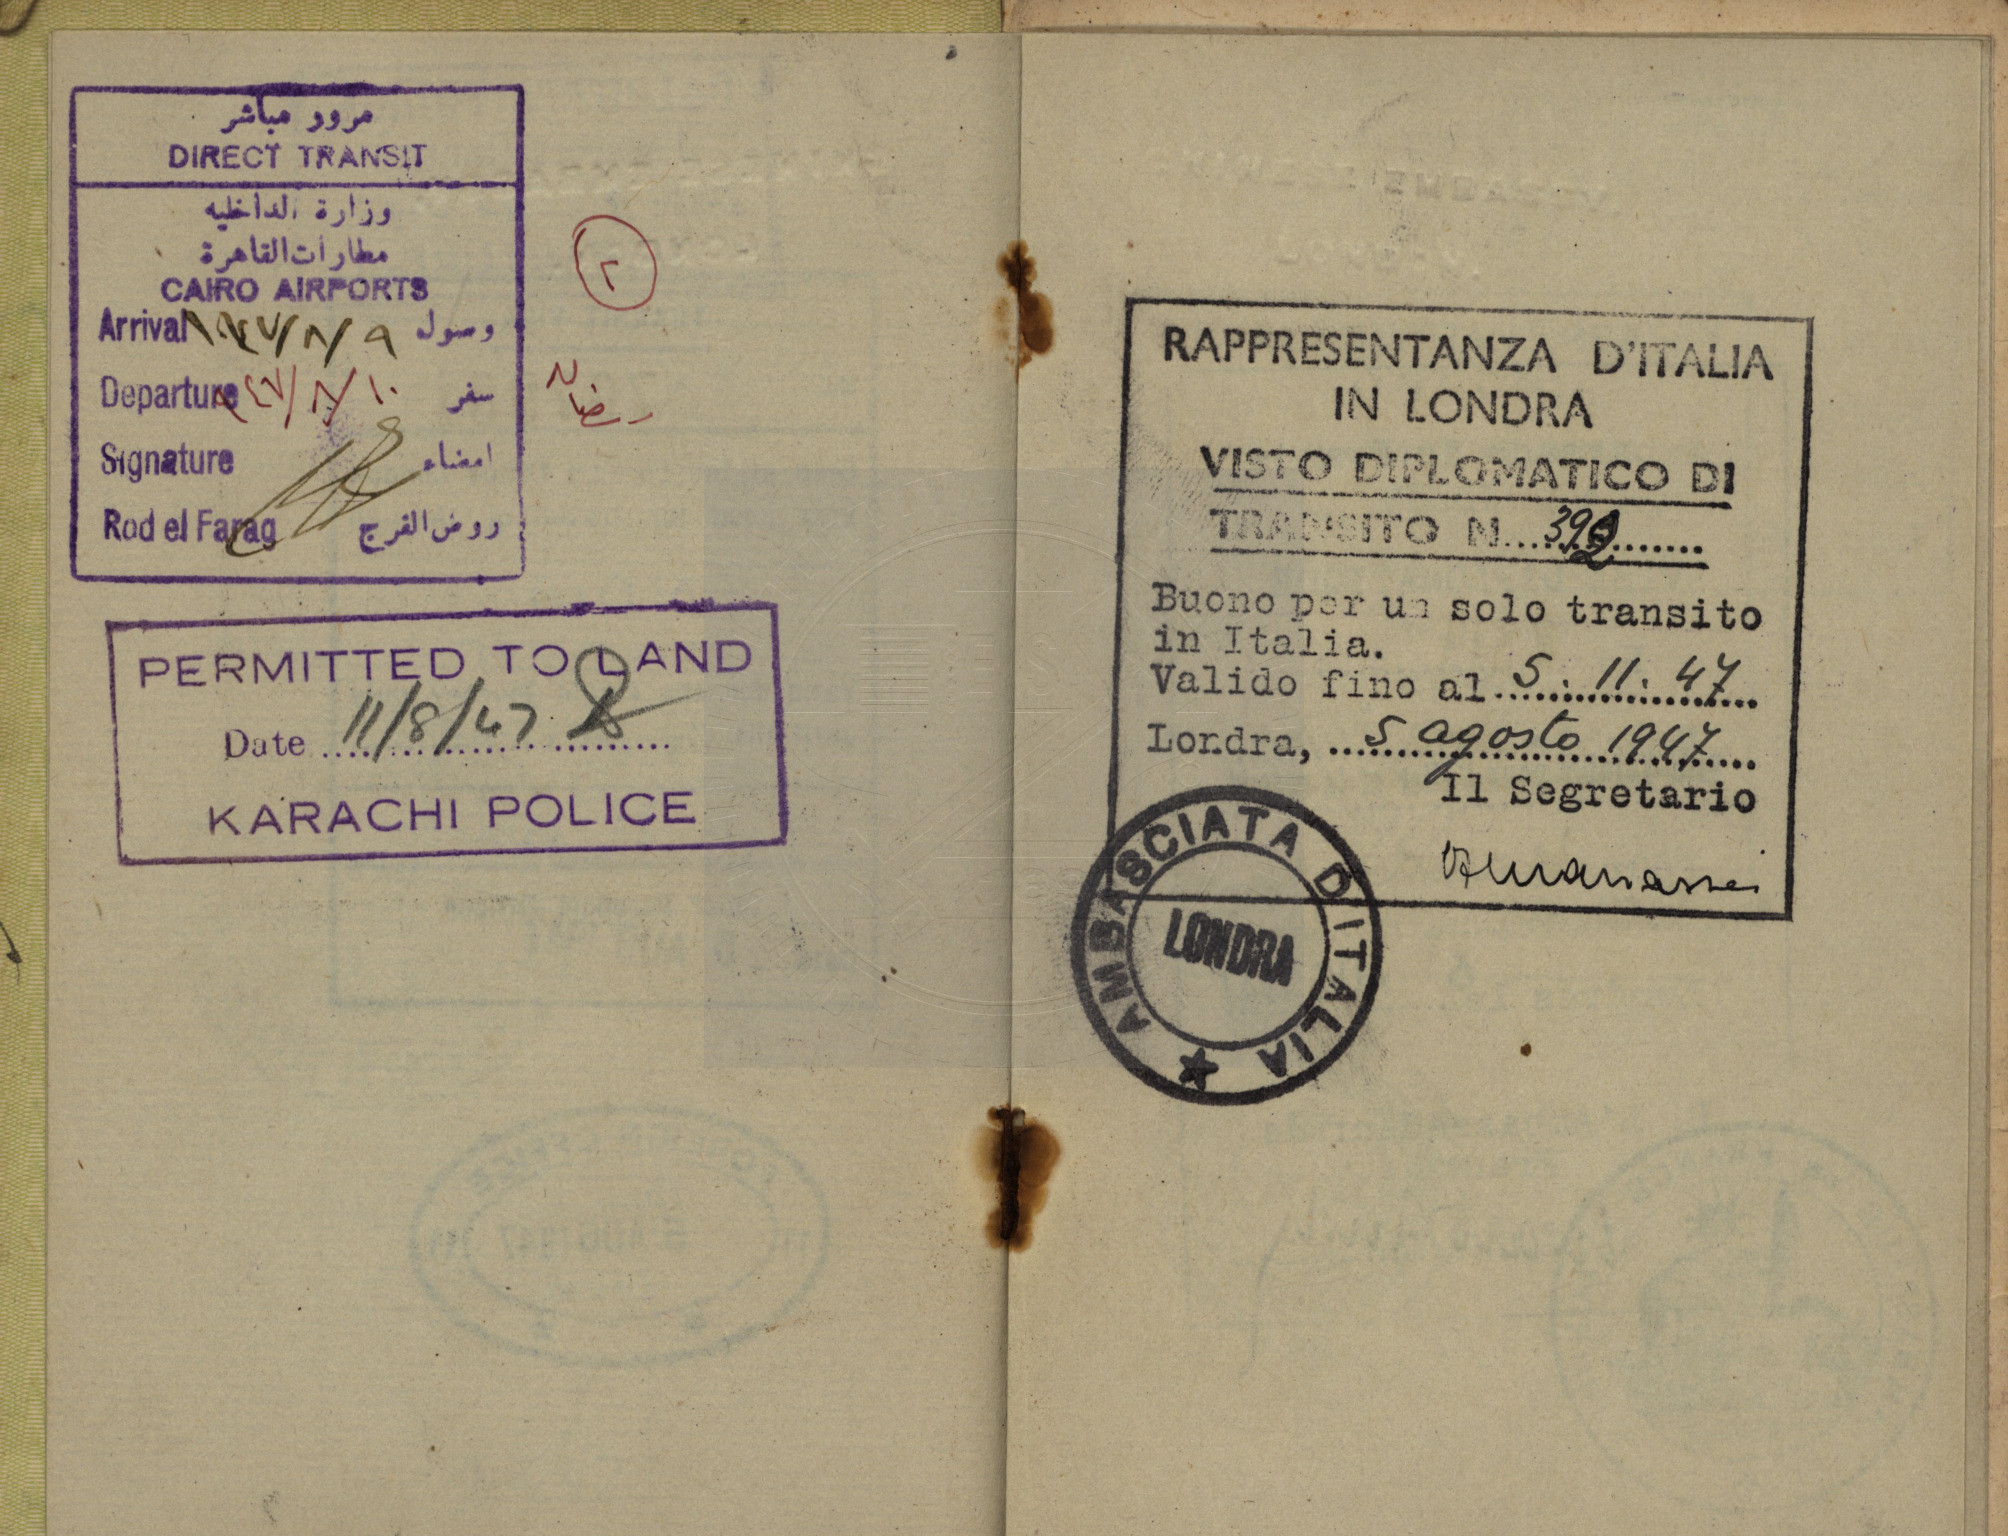 مرور مباشر
DIRECT TRANSIT
وزارة الداخليه
مطارات القاهرة
CAIRO AIRPORTS
Arrival ٩/٨/٩٤٧ وصول
Departure ١٠/٨/٩٤٧ سفر
Signature امضاء
Rod el Farag روض الفرج
٢
رمضان
PERMITTED TO LAND
Date 11/8/47
KARACHI POLICE
RAPPRESENTANZA D'ITALIA
IN LONDRA
VISTO DIPLOMATICO DI
TRANSITO N. 392
Buono per un solo transito
in Italia.
Valido fino al 5.11.47
Londra, 5 agosto 1947
Il Segretario
AMBASCIATA D'ITALIA
LONDRA